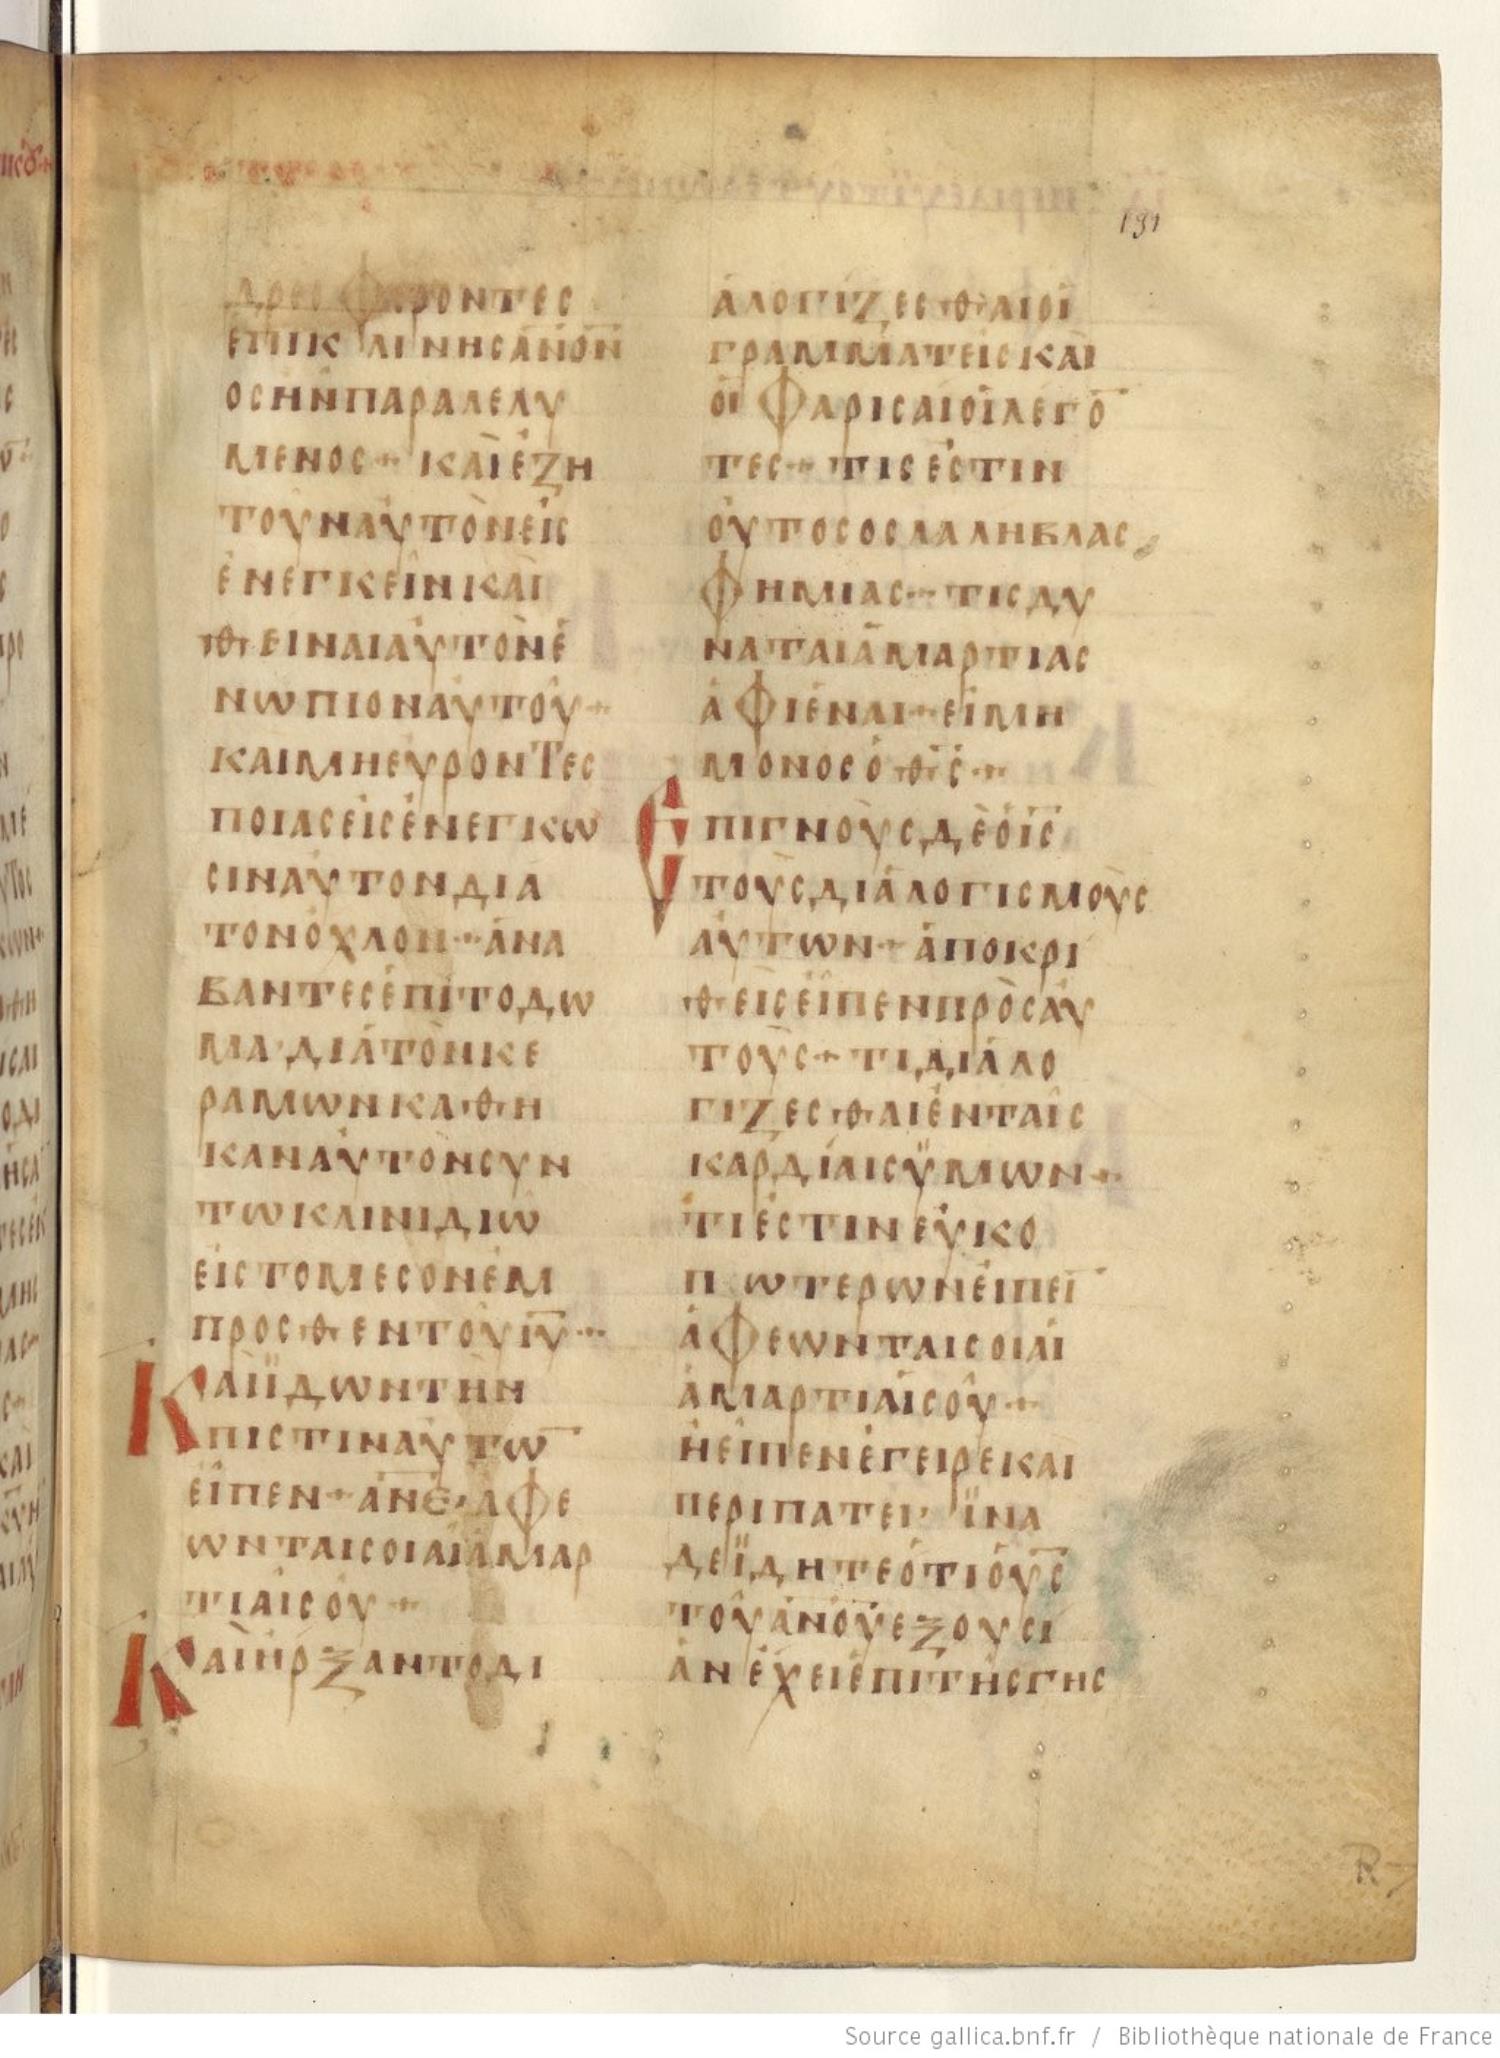 191
ΔΡΕϹ ΦΕΡΟΝΤΕϹ
ΕΠΙΚΛΙΝΗϹΑΝΟΝ
ΟϹΗΝΠΑΡΑΛΕΛΥ
ΜΕΝΟϹ+ ΚΑΙΕΖΗ
ΤΟΥΝΑΥΤΟΝΕΙϹ
ΕΝΕΓΚΕΙΝΚΑΙ
ΘΕΙΝΑΙΑΥΤΟΝΕ
ΝΩΠΙΟΝΑΥΤΟΥ+
ΚΑΙΜΗΕΥΡΟΝΤΕϹ
ΠΟΙΑϹΕΙϹΕΝΕΓΚΩ
ϹΙΝΑΥΤΟΝΔΙΑ
ΤΟΝΟΧΛΟΝ+ΑΝΑ
ΒΑΝΤΕϹΕΠΙΤΟΔΩ
ΜΑ·ΔΙΑΤΟΝΚΕ
ΡΑΜΩΝΚΑΘΗ
ΚΑΝΑΥΤΟΝϹΥΝ
ΤΩΚΛΙΝΙΔΙΩ
ΕΙϹΤΟΜΕϹΟΝΕΜ
ΠΡΟϹΘΕΝΤΟΥΙΥ+
ΚΑΙΪΔΩΝΤΗΝ
ΠΙϹΤΙΝΑΥΤΩ̅
ΕΙΠΕΝ+ΑΝΕ·ΑΦΕ
ΩΝΤΑΙϹΟΙΑΙΑΜΑΡ
ΤΙΑΙϹΟΥ+
ΚΑΙΗΡΞΑΝΤΟΔΙ
ΑΛΟΓΙΖΕϹΘΑΙΟΙ
ΓΡΑΜΜΑΤΕΙϹΚΑΙ
ΟΙΦΑΡΙϹΑΙΟΙΛΕΓΟ̅
ΤΕϹ+ΤΙϹΕϹΤΙΝ
ΟΥΤΟϹΟϹΛΑΛΗΒΛΑϹ
ΦΗΜΙΑϹ+ΤΙϹΔΥ
ΝΑΤΑΙΑΜΑΡΤΙΑϹ
ΑΦΙΕΝΑΙ+ΕΙΜΗ
ΜΟΝΟϹΟΘ̅Ϲ̅+
ΕΠΙΓΝΟΥϹΔΕΟΙ̅Ϲ̅
ΤΟΥϹΔΙΑΛΟΓΙϹΜΟΥϹ
ΑΥΤΩΝ+ΑΠΟΚΡΙ
ΘΕΙϹΕΙΠΕΝΠΡΟϹΑΥ
ΤΟΥϹ+ΤΙΔΙΑΛΟ
ΓΙΖΕϹΘΑΙΕΝΤΑΙϹ
ΚΑΡΔΙΑΙϹΫΜΩΝ+
ΤΙΕϹΤΙΝΕΥΚΟ
ΠΩΤΕΡΩΝΕΙΠΕΙ̅
ΑΦΕΩΝΤΑΙϹΟΙΑΙ
ΑΜΑΡΤΙΑΙϹΟΥ+
ΗΕΙΠΕΝΕΓΕΙΡΕΚΑΙ
ΠΕΡΙΠΑΤΕΙ· ΪΝΑ
ΔΕΪΔΗΤΕΟΤΙΟΥ̅Ϲ̅
ΤΟΥΑΝΟΥΕΞΟΥϹΙ
ΑΝΕΧΕΙΕΠΙΤΗϹΓΗϹ
Source gallica.bnf.fr / Bibliothèque nationale de France